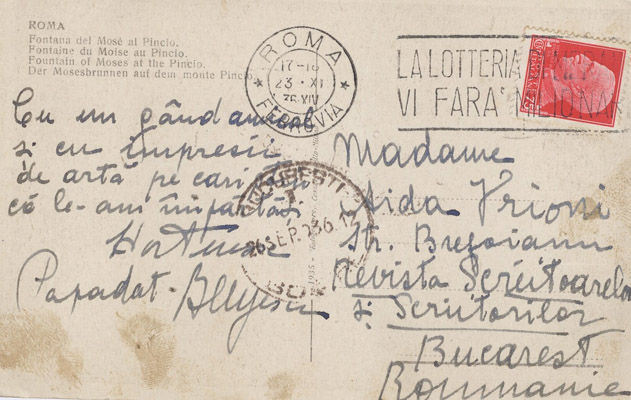 ROMA
Fontana del Mosè al Pincio.
Fontaine du Moïse au Pincio.
Fountain of Moses at the Pincio.
Der Mosesbrunnen auf dem monte Pincio
ROMA
17-18
23 · XI
36·XIV
FERROVIA
LA LOTTERIA
VI FARA'
Cu un gând amical
și cu impresii
de artă pe cari
că le-am împărtăș
Hortensia
Papadat-Bengescu
BUCUREȘTI
26 SEP. 936. 12
Madame
Aida Vrioni
Str. Brezoianu
Revista Scriitoarelor
și Scriitorilor
Bucarest
Roumanie